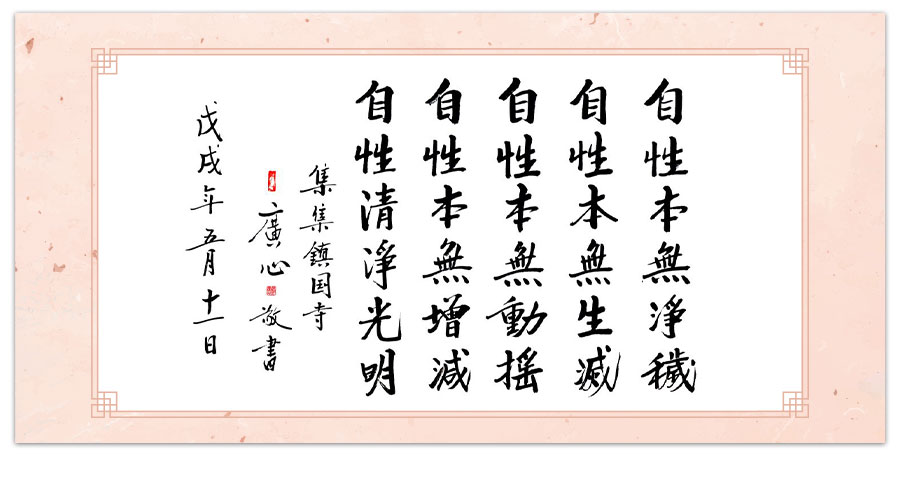 自性本無淨穢
自性本無生滅
自性本無動搖
自性本無增減
自性清淨光明
集集鎮国寺
廣心敬書
戊戌年五月十一日